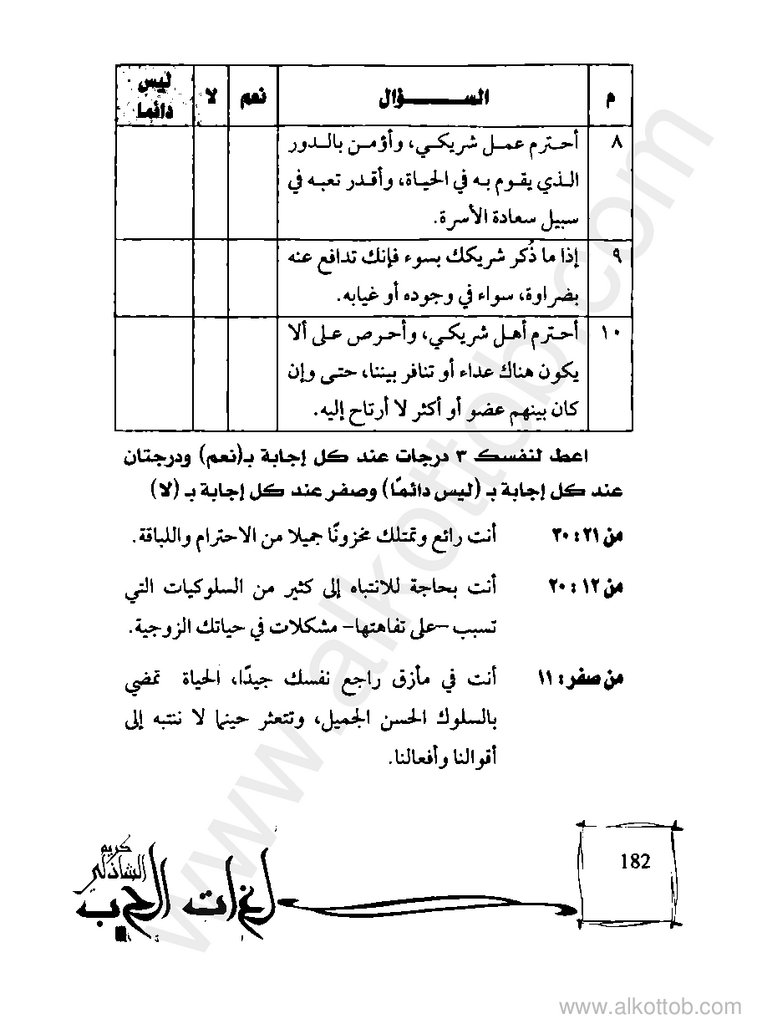 م السؤال نعم لا ليس دائما
٨ أحترم عمل شريكي، وأؤمن بالدور
الذي يقوم به في الحياة، وأقدر تعبه في
سبيل سعادة الأسرة.
٩ إذا ما ذُكر شريكك بسوء فإنك تدافع عنه
بضراوة، سواء في وجوده أو غيابه.
١٠ أحترم أهل شريكي، وأحرص على ألا
يكون هناك عداء أو تنافر بيننا، حتى وإن
كان بينهم عضو أو أكثر لا أرتاح إليه.
اعط لنفسك ٣ درجات عند كل إجابة بـ(نعم) ودرجتان
عند كل إجابة بـ (ليس دائمًا) وصفر عند كل إجابة بـ (لا)
من ٢١ : ٣٠ أنت رائع وتمتلك مخزونًا جميلا من الاحترام واللباقة.
من ١٢ : ٢٠ أنت بحاجة للانتباه إلى كثير من السلوكيات التي
تسبب –على تفاهتها– مشكلات في حياتك الزوجية.
من صفر : ١١ أنت في مأزق راجع نفسك جيدًا، الحياة تمضي
بالسلوك الحسن الجميل، وتتعثر حينما لا ننتبه إلى
أقوالنا وأفعالنا.
182
كريم
الشاذلي
لغات الحب
www.alkottob.com
www.alkottob.com